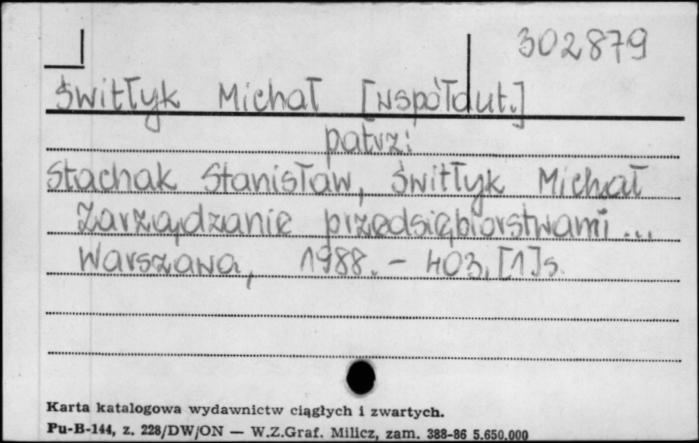 302879
Świtłyk Michał [współaut.]
patrz:
Stachak Stanisław, Świtłyk Michał
Zarządzanie przedsiębiorstwami...
Warszawa, 1988. - 403, [1] s.
Karta katalogowa wydawnictw ciągłych i zwartych.
Pu-B-144, z. 228/DW/ON — W.Z.Graf. Milicz, zam. 388-86 5.650.000